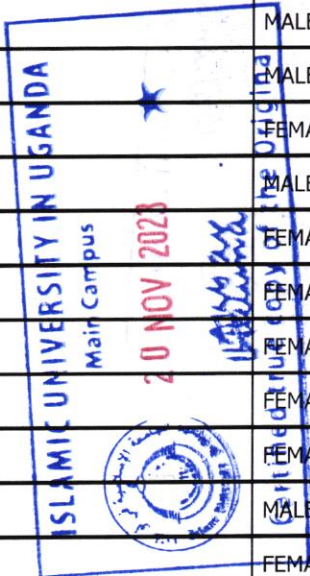 ISLAMIC UNIVERSITY IN UGANDA
Main Campus
20 NOV 2023
Certified true copy of the Original
MALE
MALE
FEMA
MALE
FEMA
FEMA
FEMA
FEMA
FEMA
MALE
FEMA